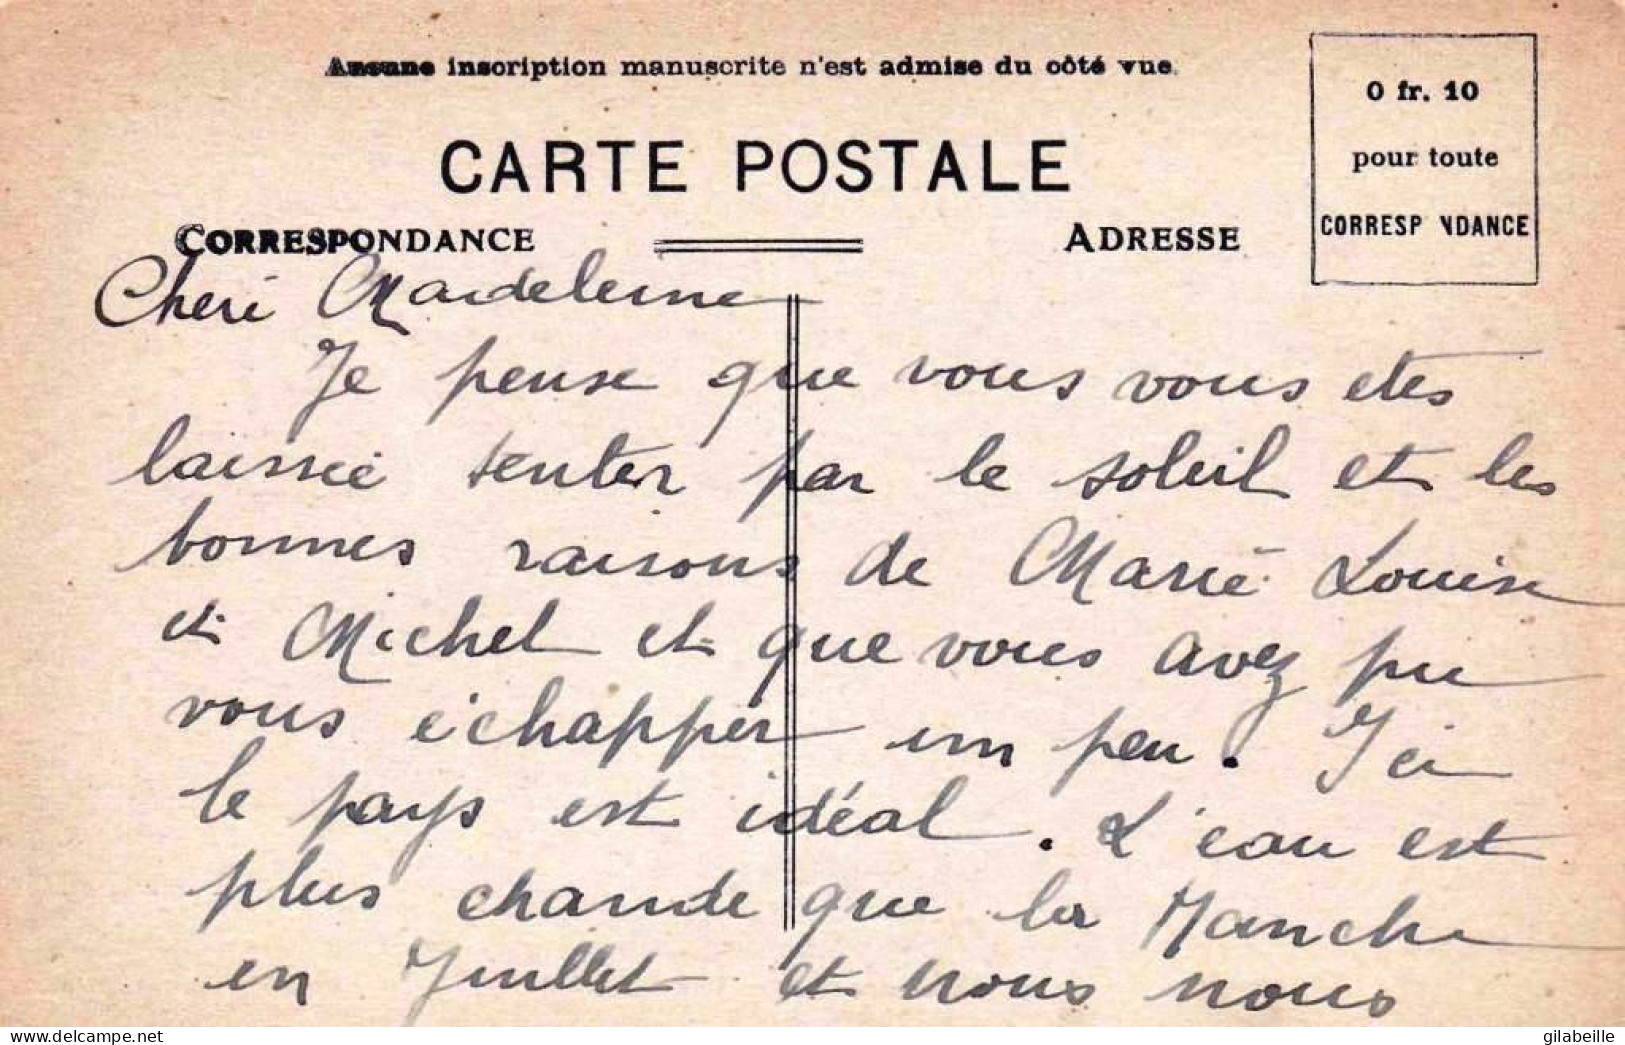 Aucune inscription manuscrite n'est admise du côté vue.
0 fr. 10
pour toute
CORRESP NDANCE
CARTE POSTALE
CORRESPONDANCE
ADRESSE
Cheri Mardeleine
Je pense que vous vous etes
laissée tenter par le soleil et les
bonnes raisons de Marie Louise
et Michel et que vous avez pu
vous échapper un peu. Ici
le pays est idéal. L'eau est
plus chaude que la Manche
en Juillet et nous nous
www.delcampe.net
gilabeille